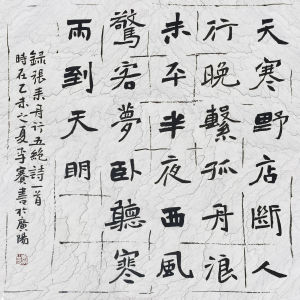 天寒野店斷人
行晚繫孤舟浪
未平半夜西風
驚客夢臥聽寒
雨到天明
錄張耒舟行五絕詩一首
時在乙未之夏李賽書於廣陽